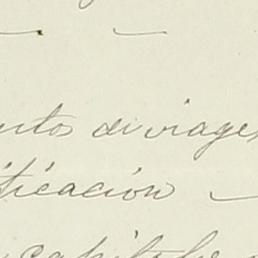 entos de viages
tificación —
capitolo